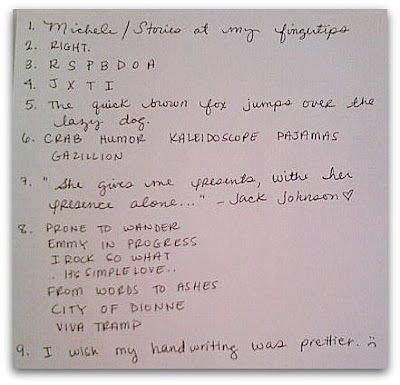 1. Michele/Stories at my fingertips
2. RIGHT.
3. R S P B D O A
4. J X T I
5. The quick brown fox jumps over the
lazy dog.
6. CRAB HUMOR KALEIDOSCOPE PAJAMAS
GAZILLION
7. "She gives me presents, withe her
presence alone..." - Jack Johnson ♡
8. PRONE TO WANDER
EMMY IN PROGRESS
I ROCK SO WHAT
..ITS SIMPLE LOVE..
FROM WORDS TO ASHES
CITY OF DIONNE
VIVA TRAMP
9. I wish my handwriting was prettier. :(